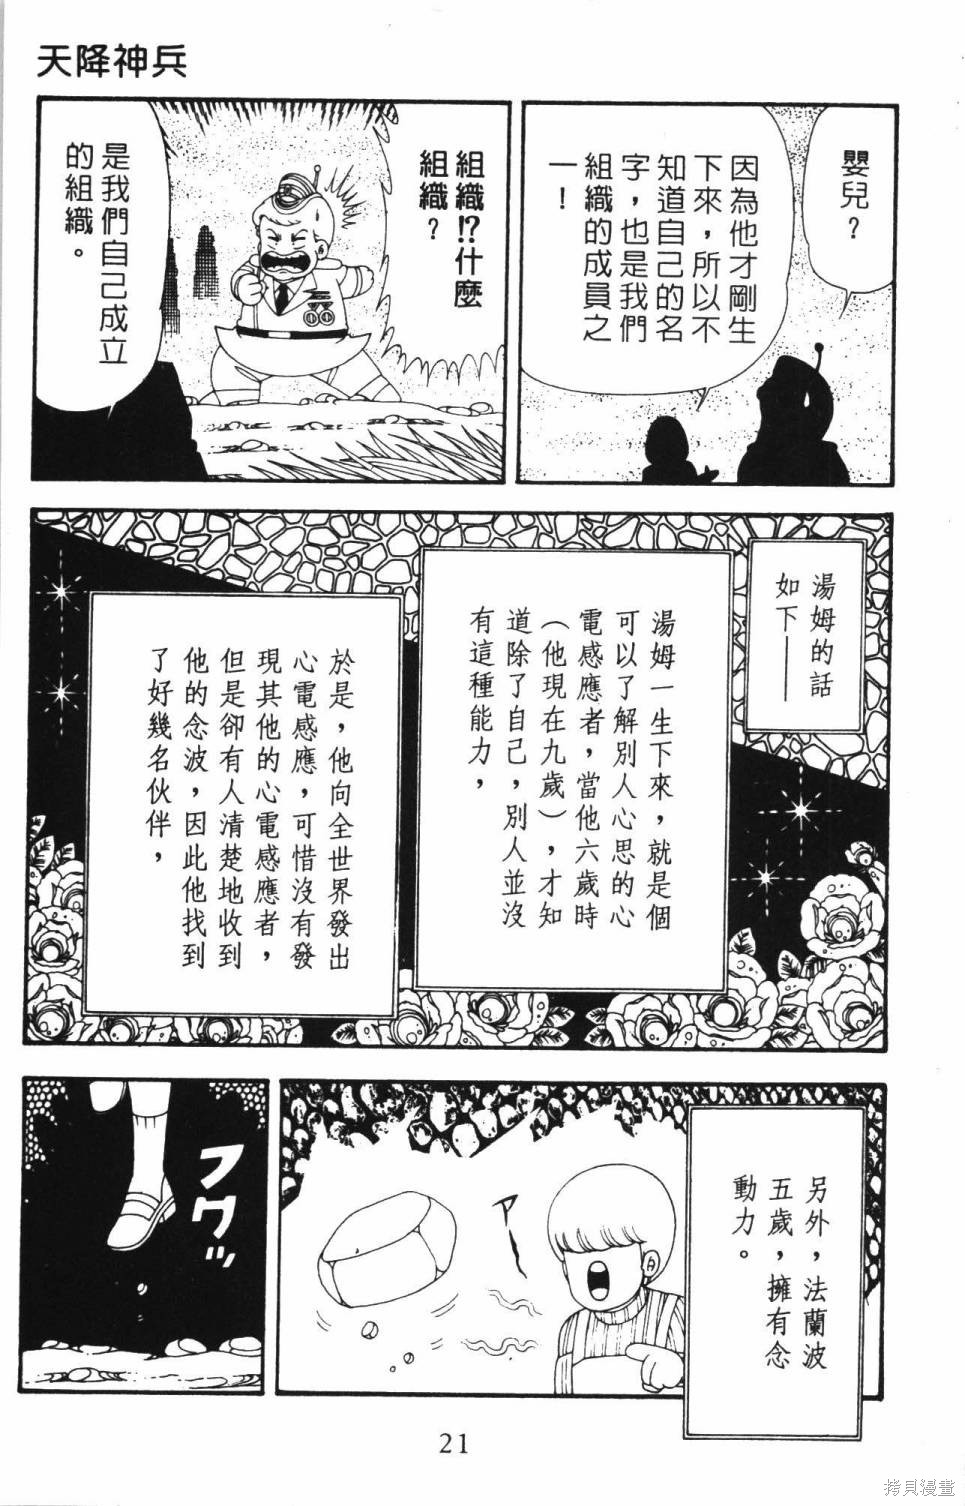 天降神兵
嬰兒？
因為他才剛生
下來，所以不
知道自己的名
字，也是我們
組織的成員之
一！
組織!?什麼
組織？
是我們自己成立
的組織。
湯姆的話
如下——
湯姆一生下來，就是個
可以了解別人心思的心
電感應者，當他六歲時
（他現在九歲），才知
道除了自己，別人並沒
有這種能力，
於是，他向全世界發出
心電感應，可惜沒有發
現其他的心電感應者，
但是卻有人清楚地收到
他的念波，因此他找到
了好幾名伙伴，
另外，法蘭波
五歲，擁有念
動力。
アー
フワッ
21
拷貝漫畫